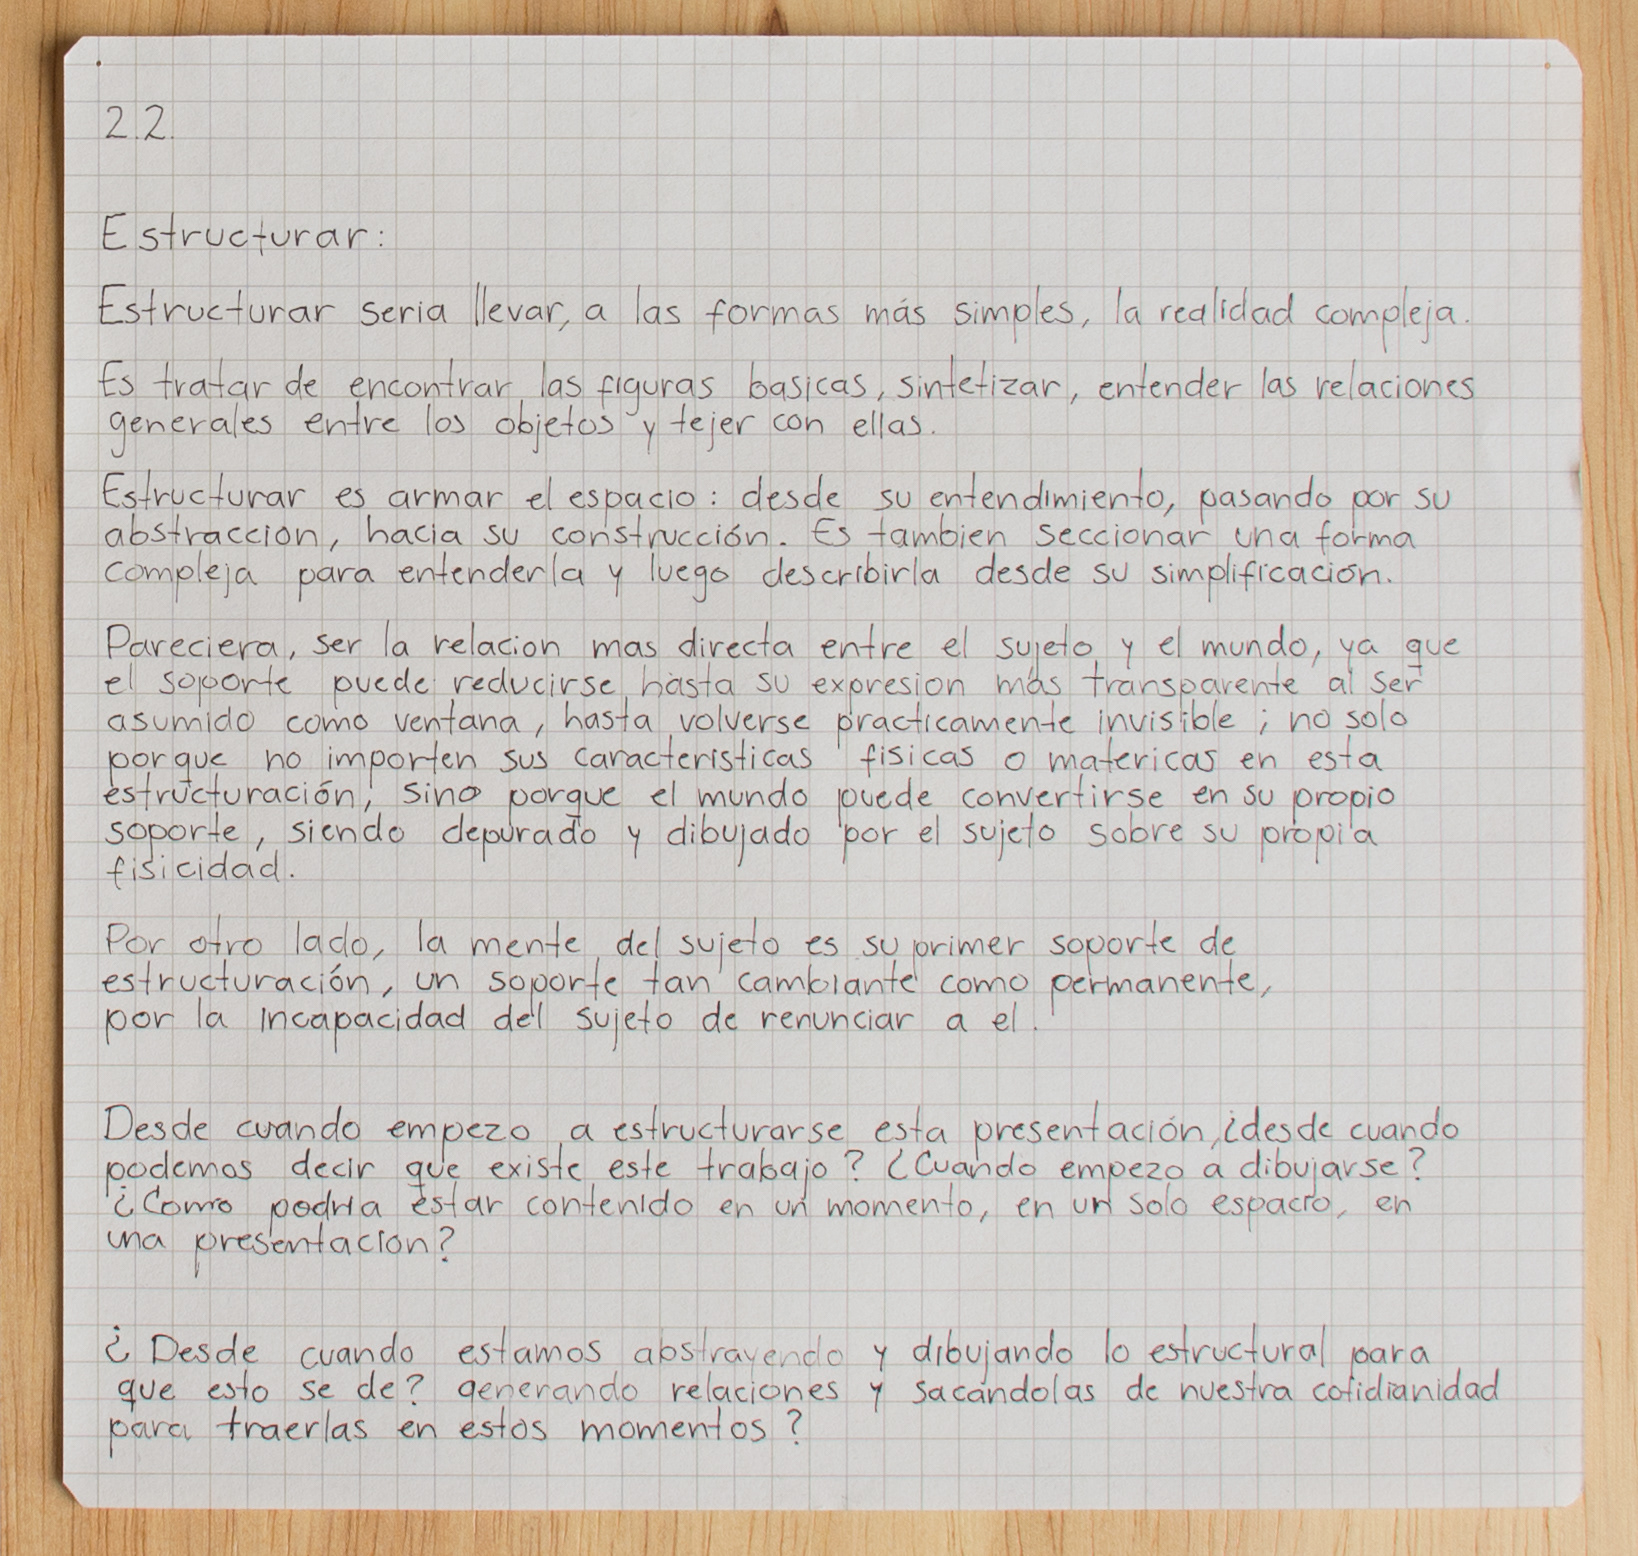 2.2.
Estructurar:
Estructurar seria llevar, a las formas más simples, la realidad compleja.
Es tratar de encontrar las figuras basicas, sintetizar, entender las relaciones
generales entre los objetos y tejer con ellas.
Estructurar es armar el espacio: desde su entendimiento, pasando por su
abstraccion, hacia su construcción. Es tambien seccionar una forma
compleja para entenderla y luego describirla desde su simplificación.
Pareciera, ser la relacion mas directa entre el sujeto y el mundo, ya que
el soporte puede reducirse hasta su expresion más transparente al ser
asumido como ventana, hasta volverse practicamente invisible; no solo
porque no importen sus caracteristicas fisicas o matericas en esta
estructuración, sino porque el mundo puede convertirse en su propio
soporte, siendo depurado y dibujado por el sujeto sobre su propia
fisicidad.
Por otro lado, la mente del sujeto es su primer soporte de
estructuración, un soporte tan cambiante como permanente,
por la incapacidad del sujeto de renunciar a el.
Desde cuando empezo a estructurarse esta presentación, ¿desde cuando
podemos decir que existe este trabajo? ¿Cuando empezo a dibujarse?
¿Como podria estar contenido en un momento, en un solo espacio, en
una presentacion?
¿Desde cuando estamos abstrayendo y dibujando lo estructural para
que esto se de? generando relaciones y sacándolas de nuestra cotidianidad
para traerlas en estos momentos?